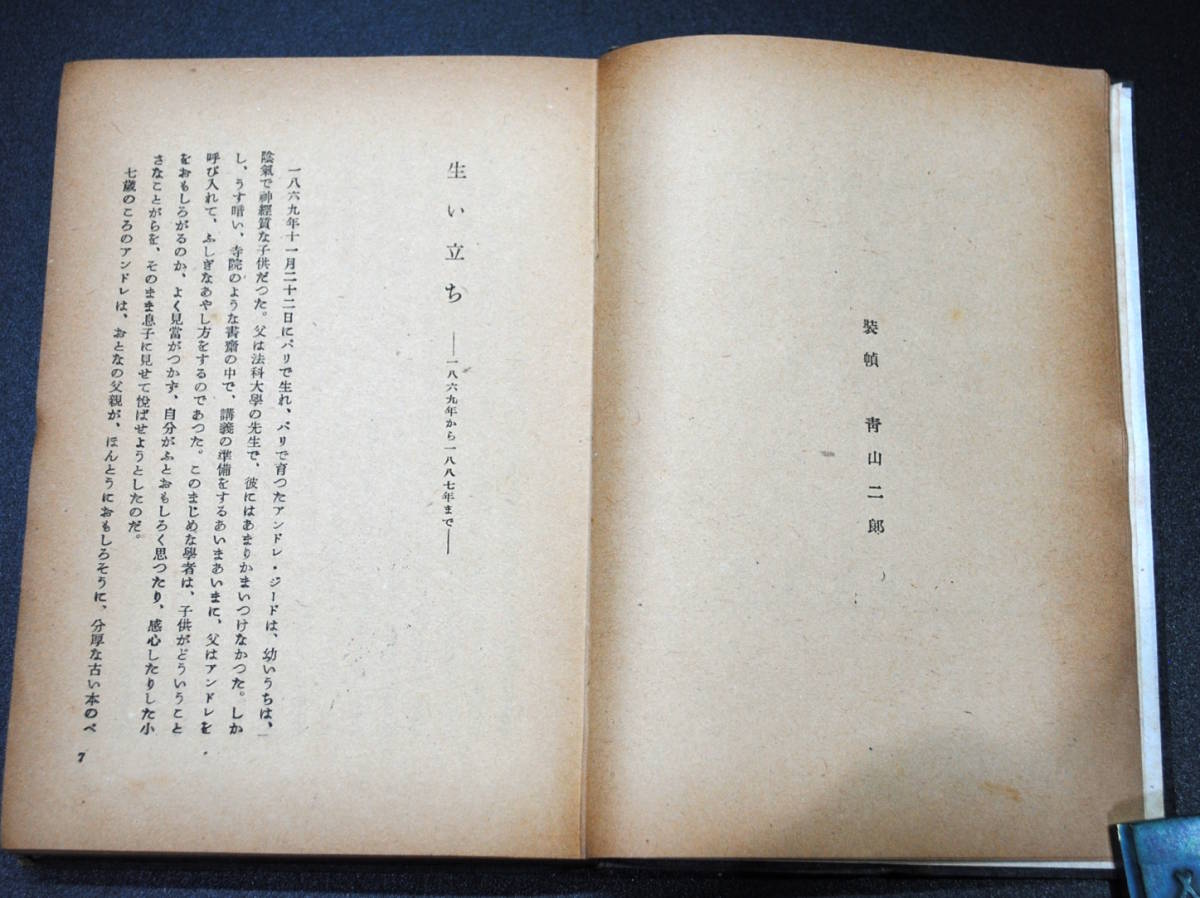 裝幀　靑山二郎
生い立ち　――一八六九年から一八八七年まで――
一八六九年十一月二十二日にパリで生れ、パリで育つたアンドレ・ジードは、幼いうちは、
陰氣で神經質な子供だつた。父は法科大學の先生で、彼にはあまりかまいつけなかつた。しか
し、うす暗い、寺院のような書齋の中で、講義の準備をするあいまあいまに、父はアンドレを
呼び入れて、ふしぎなあやし方をするのであつた。このまじめな學者は、子供がどういうこと
をおもしろがるのか、よく見當がつかず、自分がふとおもしろく思つたり、感心したりした小
さなことがらを、そのまま息子に見せて悅ばせようとしたのだ。
七歲のころのアンドレは、おとなの父親が、ほんとうにおもしろそうに、分厚な古い本のペ
7